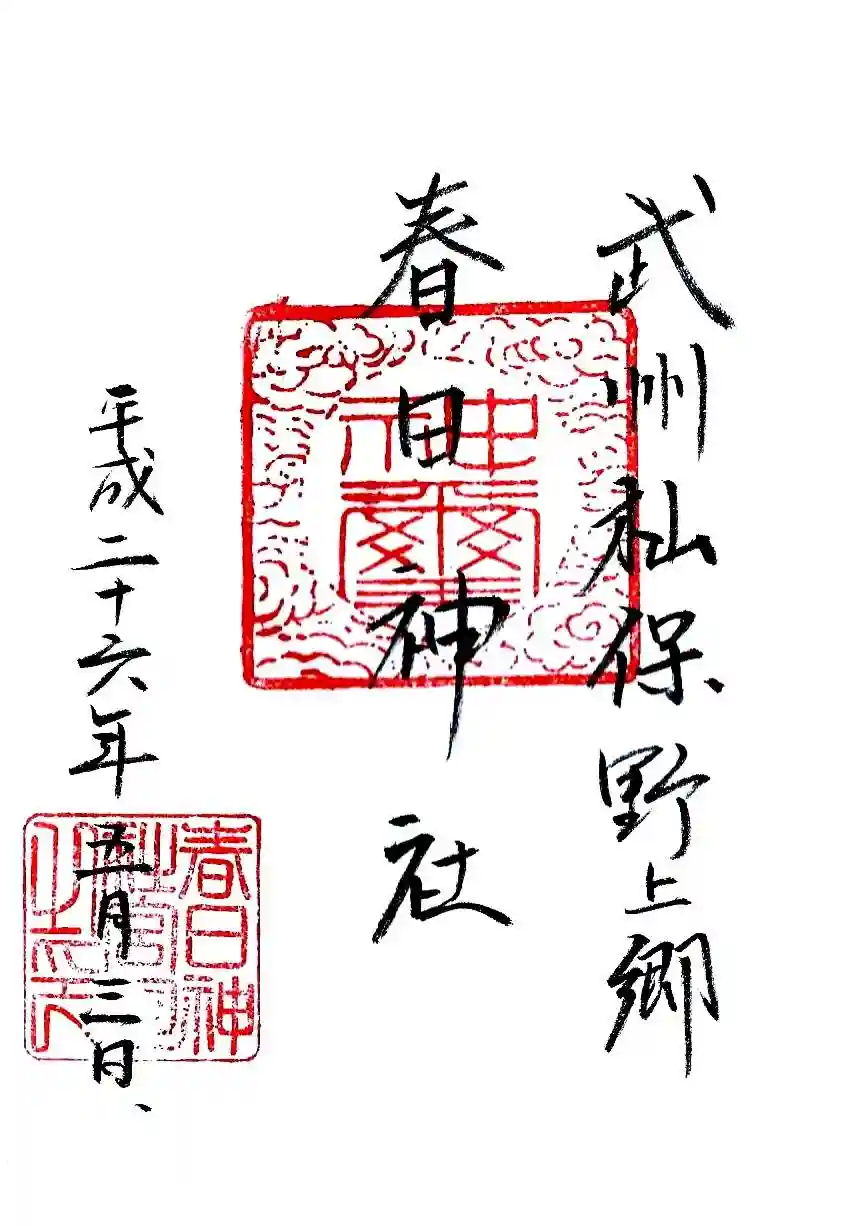 武州杣保野上郷
春日神社
平成二十六年五月三日、
神璽
春日神
社宮司
之印